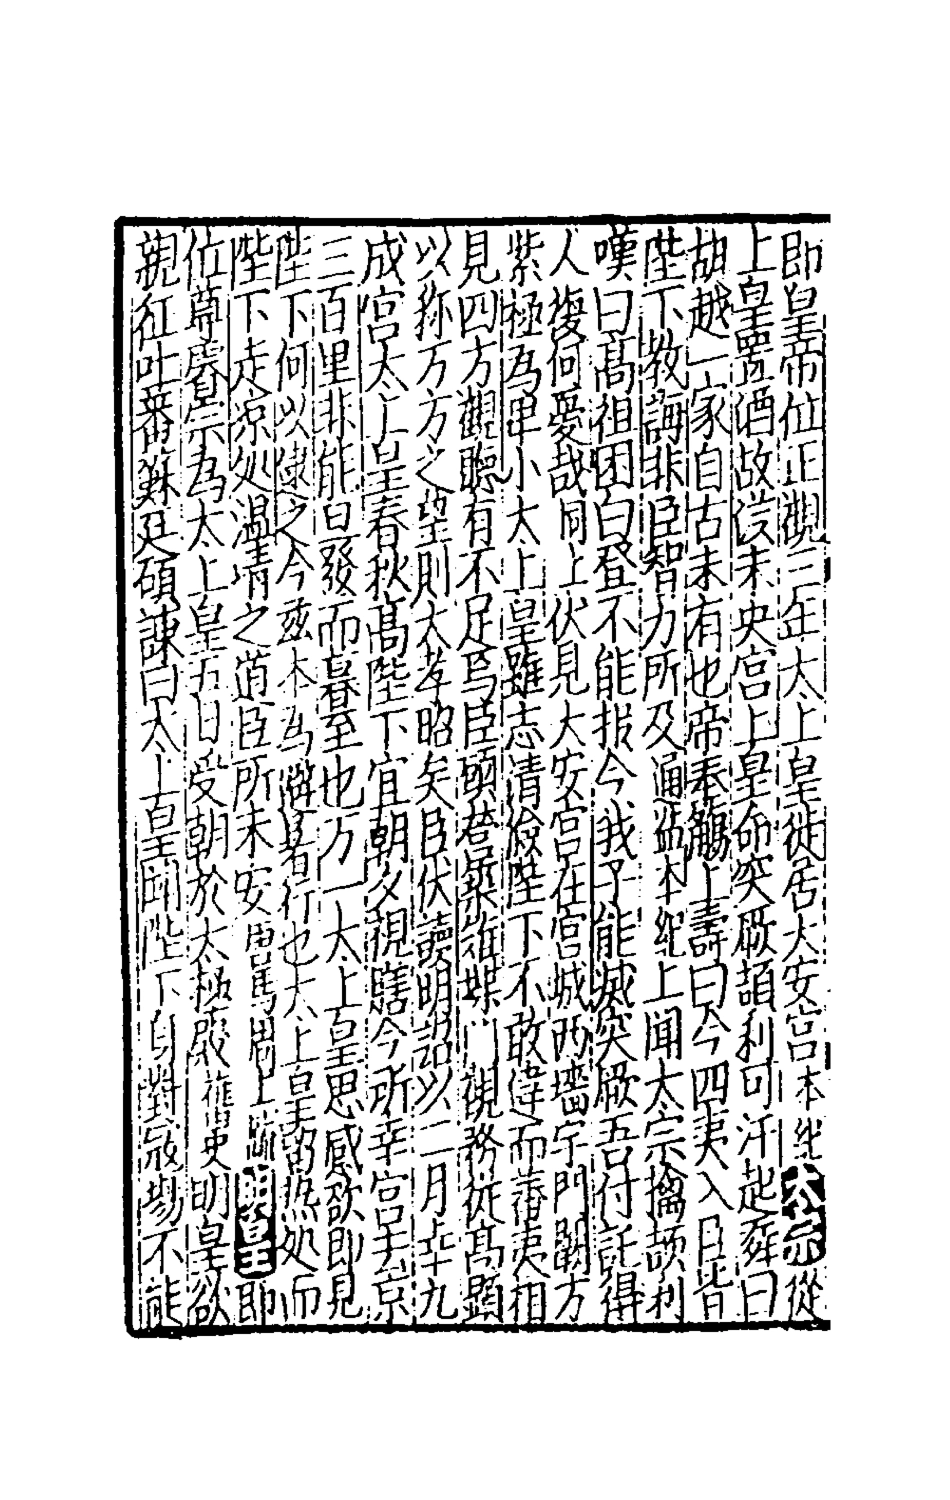 即皇帝位正觀三年太上皇徙居大安宮本紀太宗從
上皇置酒故漢未央宮上皇命突厥頡利可汗起舞曰
胡越一家自古未有也帝奉觴上壽曰今四夷入臣皆
陛下教誨非臣智力所及通鑑本紀上聞太宗擒頡利
嘆曰高祖困白登不能报今我子能滅突厥吾付託得
人復何憂哉同上伏見大安宮在宮城西墻宇門闕方
紫極為卑小太上皇雖志清儉陛下不敢違而蕃夷相
見四方觀聽有不足焉臣願營築雉堞門視務從高顯
以称万方之望則大孝昭矣臣伏讀明詔以二月幸九
成宮太上皇春秋高陛下宜朝夕視膳今所幸宮去京
三百里非能旦發而暮至也万一太上皇思感欲即見
陛下何以逮之今兹本為避暑行也太上皇留热处而
陛下走凉处温凊之道臣所未安唐馬周上疏明皇即
位尊睿宗為太上皇五日受朝於太極殿舊史明皇欲
親征吐蕃蘇廷碩諫曰太上皇聞陛下自對寇場不能